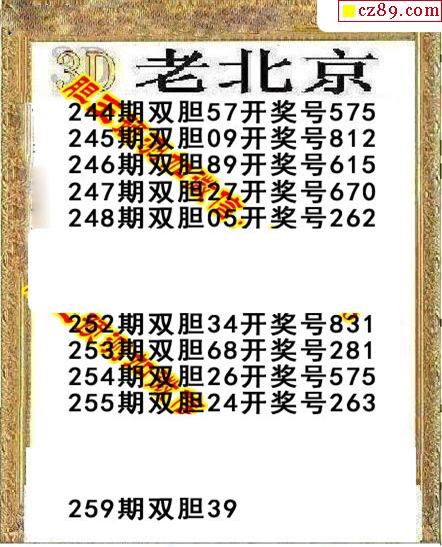 cz89.com
3D 老北京
244期双胆57开奖号575
245期双胆09开奖号812
246期双胆89开奖号615
247期双胆27开奖号670
248期双胆05开奖号262
252期双胆34开奖号831
253期双胆68开奖号281
254期双胆26开奖号575
255期双胆24开奖号263
259期双胆39